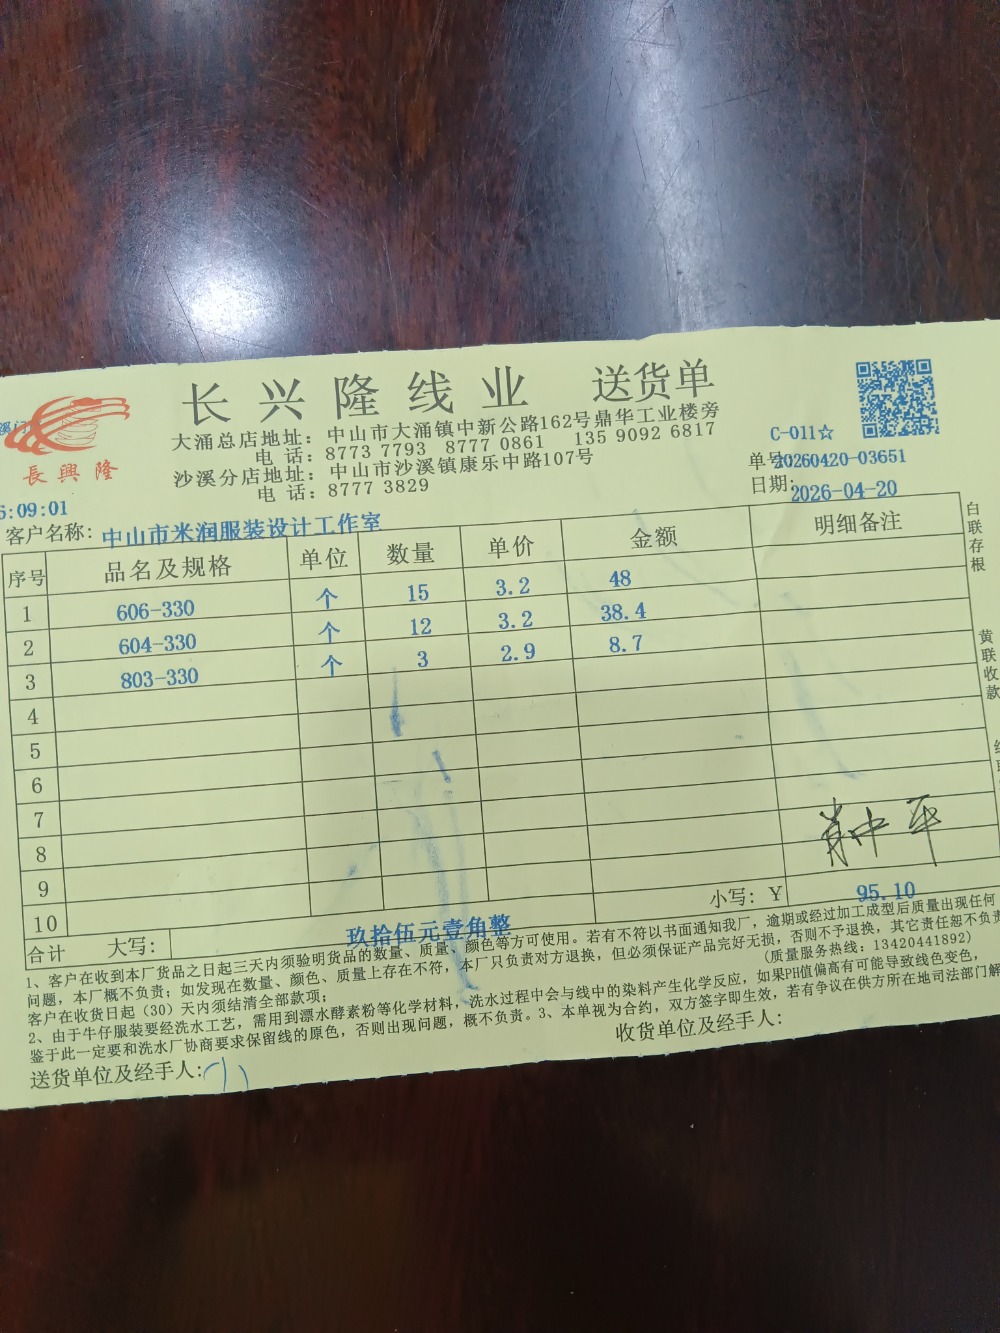 长兴隆线业 送货单
大涌总店地址：中山市大涌镇中新公路162号鼎华工业楼旁
电 话：8773 7793 8777 0861 135 9092 6817
沙溪分店地址：中山市沙溪镇康乐中路107号
电 话：8777 3829
長興隆
C-011☆
单号:20260420-03651
日期:2026-04-20
6:09:01
客户名称：中山市米润服装设计工作室
序号 品名及规格 单位 数量 单价 金额 明细备注
1 606-330 个 15 3.2 48
2 604-330 个 12 3.2 38.4
3 803-330 个 3 2.9 8.7
4
5
6
7
8
9
10
合计 大写：玖拾伍元壹角整 小写：Y 95.10
1、客户在收到本厂货品之日起三天内须验明货品的数量、质量、颜色等方可使用。若有不符以书面通知我厂，逾期或经过加工成型后质量出现任何
问题，本厂概不负责；如发现在数量、颜色、质量上存在不符，本厂只负责对方退换，但必须保证产品完好无损，否则不予退换，其它责任恕不负责
客户在收货日起（30）天内须结清全部款项； (质量服务热线：13420441892)
2、由于牛仔服装要经洗水工艺，需用到漂水酵素粉等化学材料，洗水过程中会与线中的染料产生化学反应，如果PH值偏高有可能导致线色变色，
鉴于此一定要和洗水厂协商要求保留线的原色，否则出现问题，概不负责。3、本单视为合约，双方签字即生效，若有争议在供方所在地司法部门解
送货单位及经手人： 收货单位及经手人：
白联存根
黄联收款